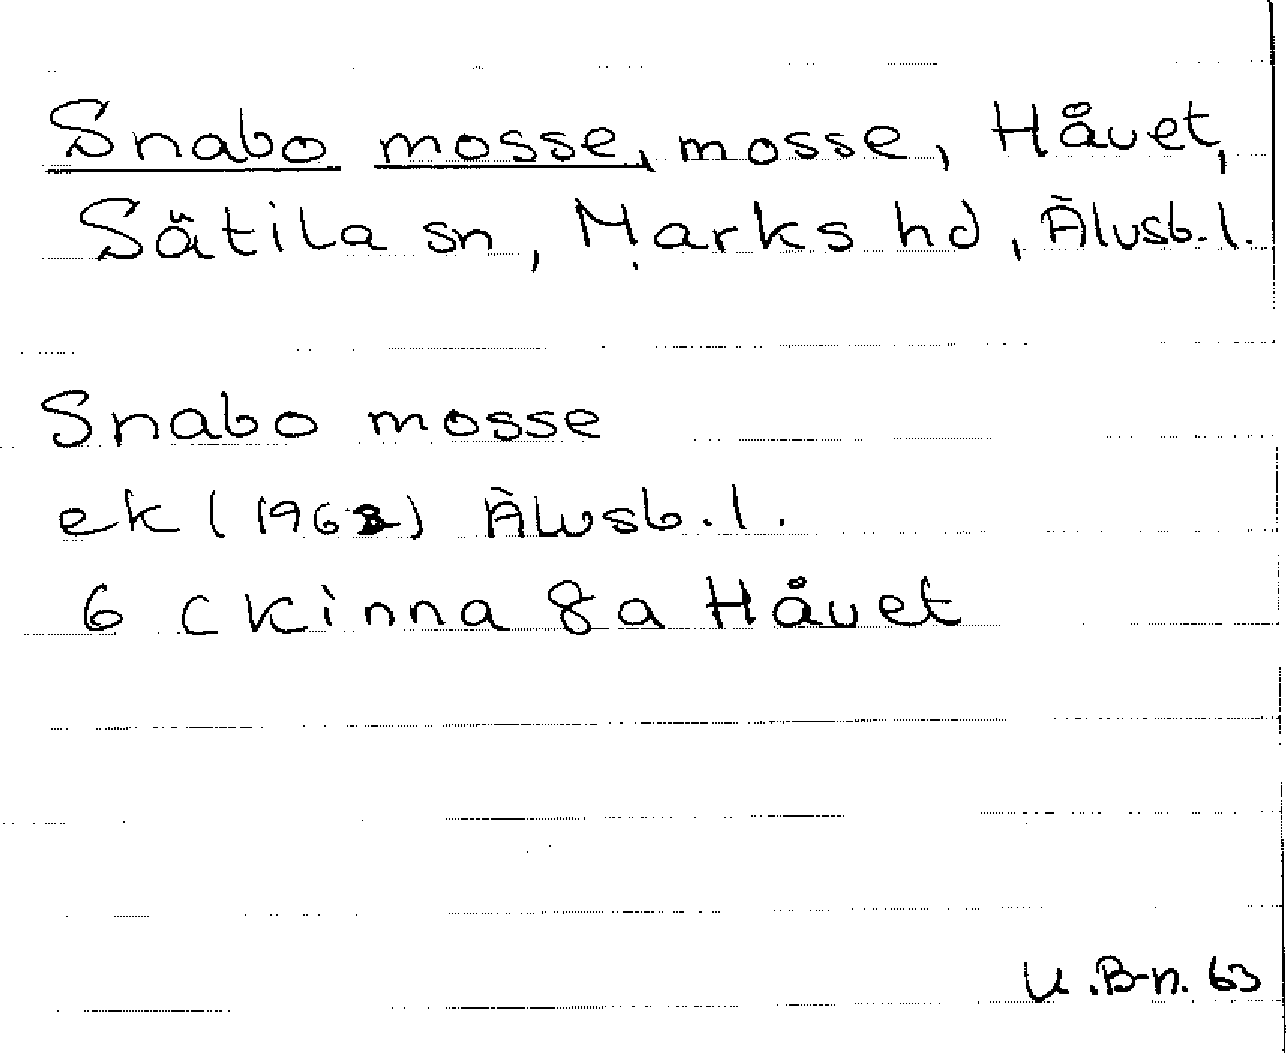 Snabo mosse, mosse, Håvet,
Sätila sn, Marks hd, Älvsb. l.
Snabo mosse
ek (1963) Älvsb. l.
6 C Kinna 8a Håvet
U. B-n. 63